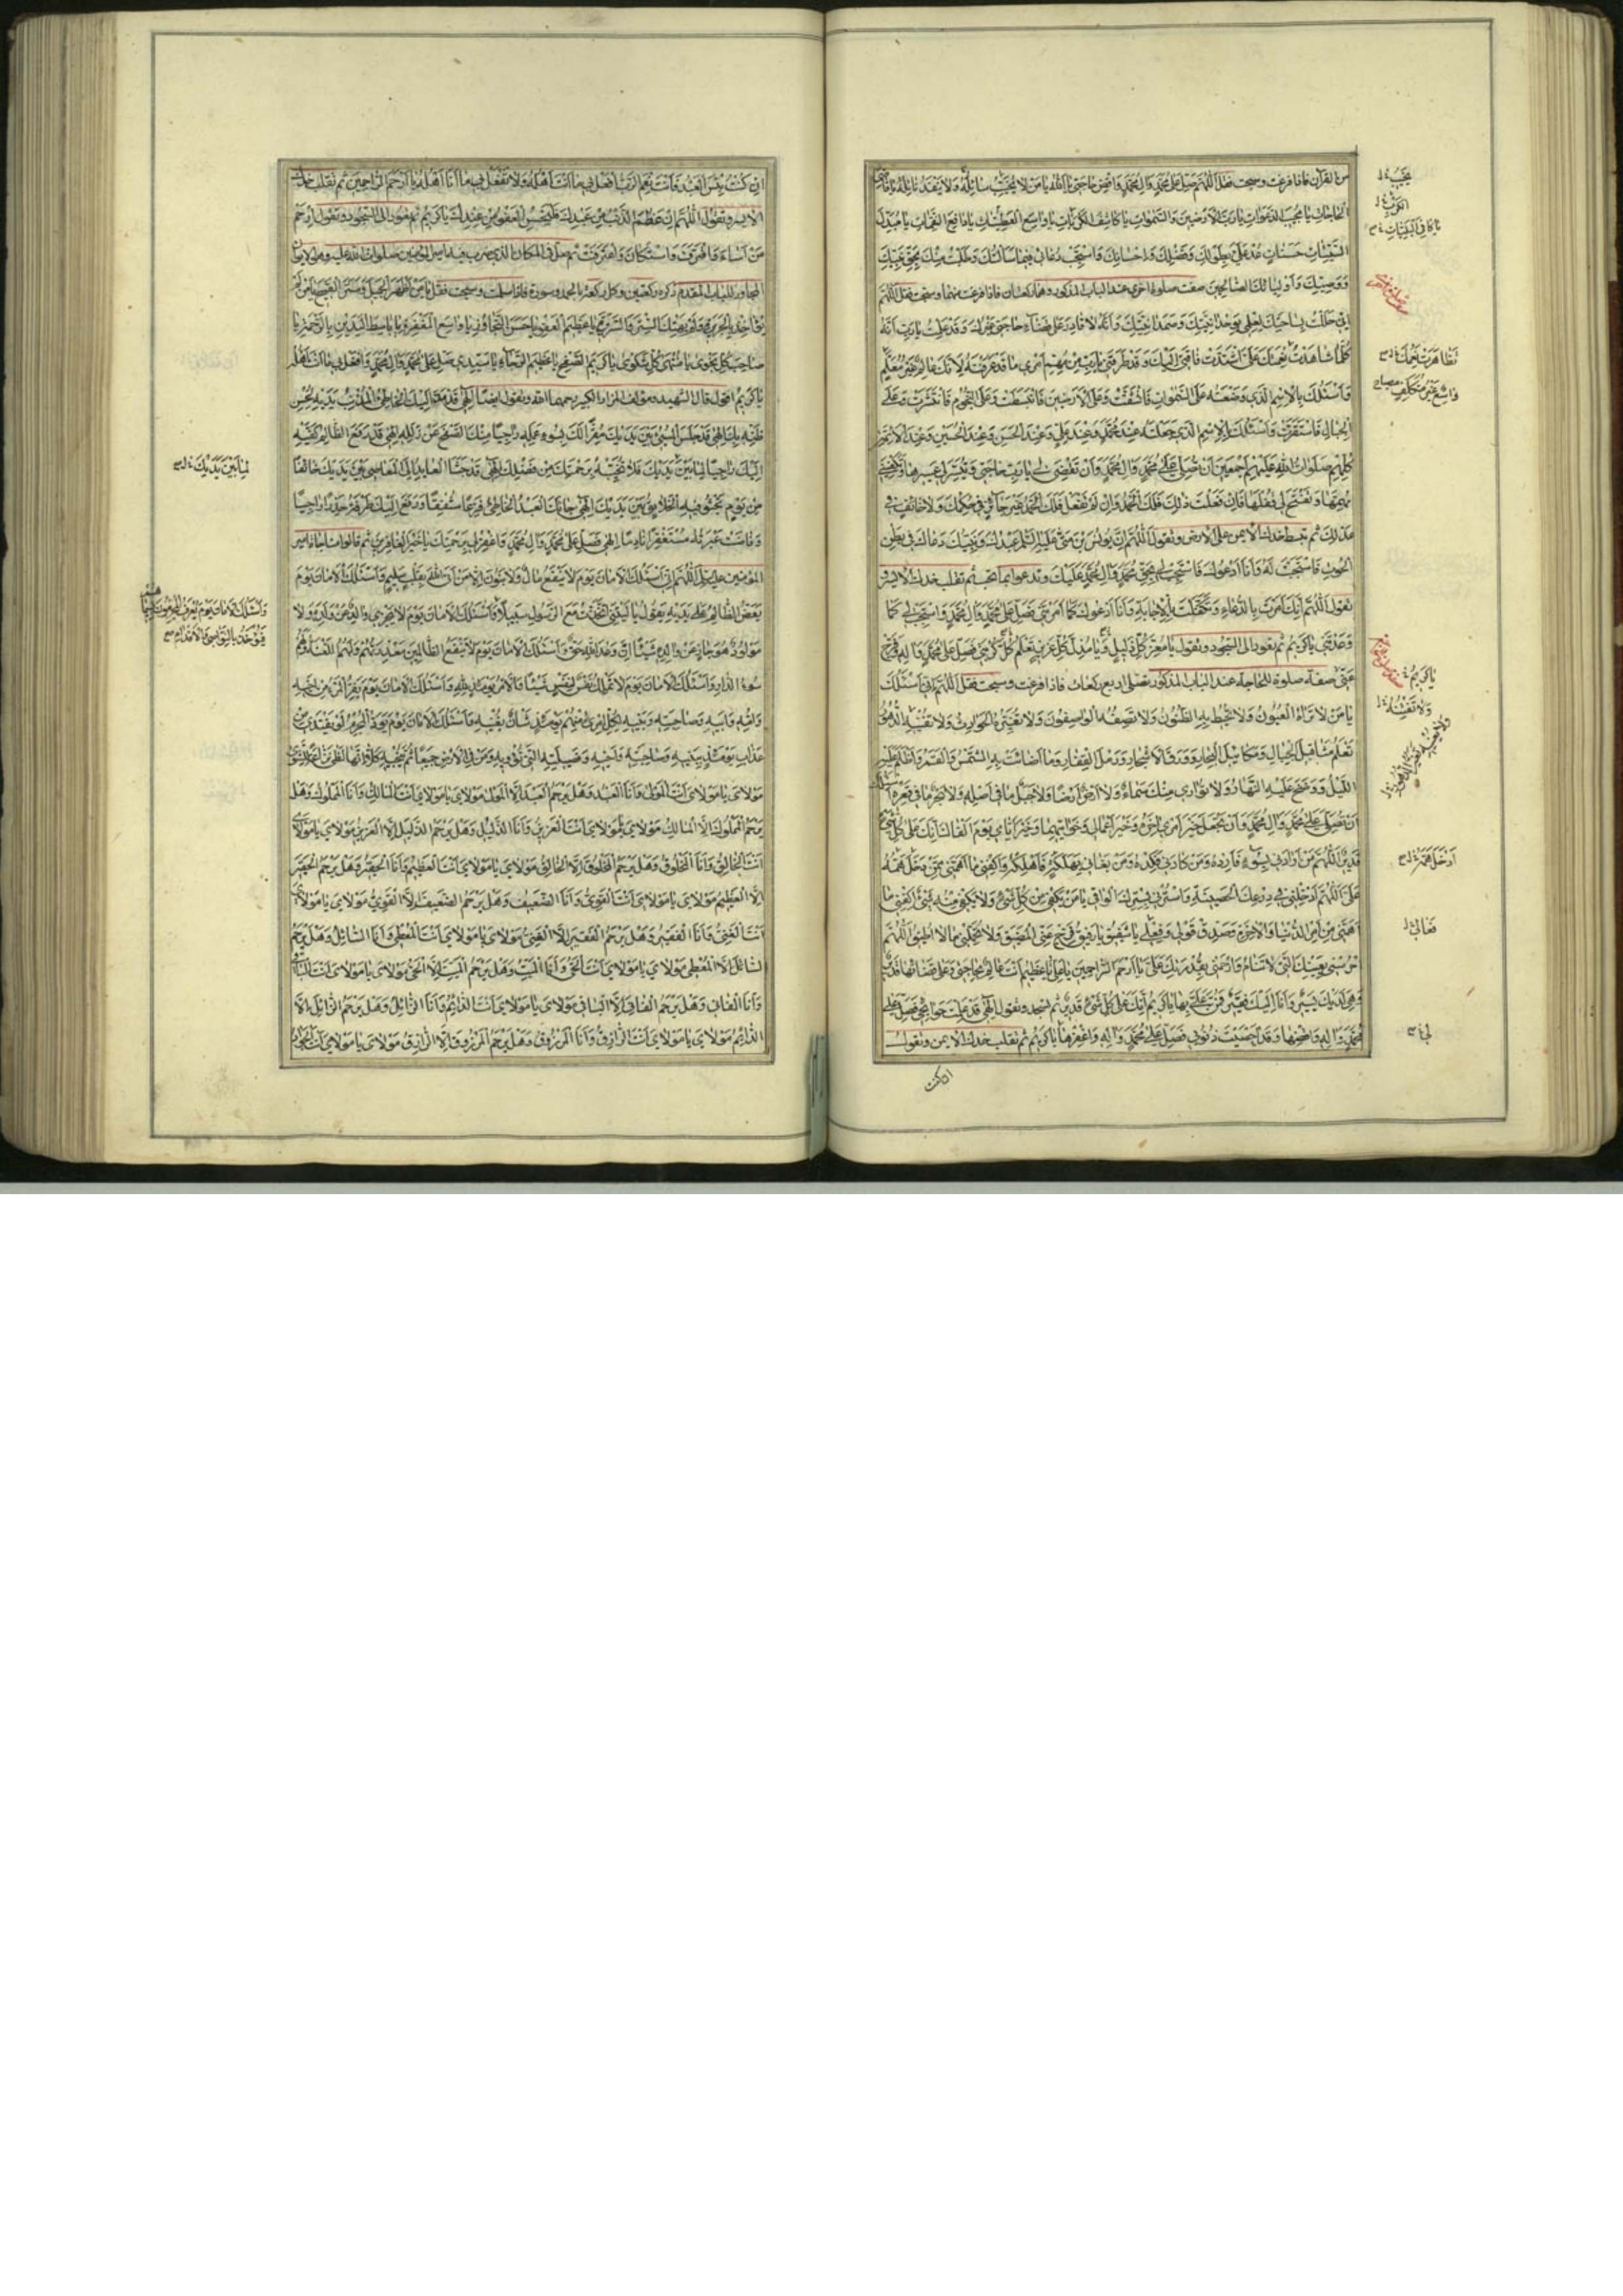 من القرآن فاذا فرغت وسبحت فقل اللهم صل على محمد وال محمد واقض حاجتى يا الله يا من لا يخيب سائله ولا ينفد نائله يا قاضى
الحاجات يا مجيب الدعوات يا رب الارضين والسموات يا كاشف الكربات يا واسع العطيات يا دافع النقمات يا مبدل
السيئات حسنات عد على بطولك وفضلك واحسانك واستجب دعائى فيما سالتك وطلبت منك بحق نبيك
ووصيك واوليائك الصالحين صفت صلوة اخرى عند الباب المذكور وهما ركعتان فاذا فرغت منهما وسبحت فقل اللهم
انى حللت بساحتك لعلمى بوحدانيتك وصمدانيتك وانه لا قادر على قضاء حاجتى غيرك وقد علمت يا رب انه
كلما شاهدت نعمتك على اشتدت فاقتى اليك وقد طرقنى يا رب من مهم امرى ما قد عرفته لانك عالم غير معلم
واسئلك بالاسم الذى وضعته على السموات فانشقت وعلى الارضين فانبسطت وعلى النجوم فانتشرت وعلى
الجبال فاستقرت واسئلك بالاسم الذى جعلته عند محمد وعند على وعند الحسن وعند الحسين وعند الائمة
كلهم صلوات الله عليهم اجمعين ان تصلى على محمد وال محمد وان تقضى لى يا رب حاجتى وتيسر لى عسيرها وتكفينى
مهمها وتفتح لى قفلها فان فعلت ذلك فلك الحمد وان لم تفعل فلك الحمد غير جائر فى حكمك ولا خائف فى
عدلك ثم تبسط خدك الايمن على الارض وتقول اللهم ان يونس بن متى عليه السلم عبدك ونبيك دعاك فى بطن
الحوت فاستجبت له وانا ادعوك فاستجب لى بحق محمد وال محمد عليك وتدعو بما تحب ثم تقلب خدك الايسر و
تقول اللهم انك امرت بالدعاء وتكفلت بالاجابة وانا ادعوك كما امرتنى فصل على محمد وال محمد واستجب لى كما
وعدتنى يا كريم ثم تعود الى السجود وتقول يا معز كل ذليل ويا مذل كل عزيز تعلم كربتى فصل على محمد واله وفرج
عنى صفة صلوة للحاجة عند الباب المذكور تصلى اربع ركعات فاذا فرغت وسبحت فقل اللهم انى اسئلك
يا من لا تراه العيون ولا تحيط به الظنون ولا تصفه الواصفون ولا تغيره الحوادث ولا تفنيه الدهور
تعلم مثاقيل الجبال ومكاييل البحار وورق الاشجار ورمل القفار وما اضائت به الشمس والقمر واظلم عليه
الليل ووضح عليه النهار ولا توارى منك سماء سماء ولا ارض ارضا ولا جبل ما فى اصله ولا بحر ما فى قعره اسئلك
ان تصلى على محمد وال محمد وان تجعل خير امرى اخره وخير اعمالى خواتيمها وخير ايامى يوم القاك انك على كل شىء
قدير اللهم من ارادنى بسوء فارده ومن كادنى فكده ومن بغانى بهلكة فاهلكه واكفنى ما اهمنى ممن دخل همه
على اللهم ادخلنى فى درعك الحصينة واسترنى بسترك الواقى يا من يكفى من كل شىء ولا يكفى منه شىء اكفنى ما
اهمنى من امر الدنيا والاخرة وصدق قولى وفعلى يا شفيق يا رفيق فرج عنى المضيق ولا تحملنى ما لا اطيق اللهم
احرسنى بعينك التى لا تنام وارحمنى بقدرتك على يا ارحم الراحمين يا على يا عظيم انت عالم بحاجتى وعلى قضائها قدير
وهى لديك يسير وانا اليك فقير فمن على بها يا كريم انك على كل شىء قدير ثم تسجد وتقول الهى قد علمت حوائجى فصل على
محمد واله واقضها وقد احصيت ذنوبى فصل على محمد واله واغفرها يا كريم ثم تقلب خدك الايمن وتقول
ان كنت
ان كنت بئس العبد فانت نعم الرب افعل بى ما انت اهله ولا تفعل بى ما انا اهله يا ارحم الراحمين ثم تقلب خدك
الايسر وتقول اللهم ان عظم الذنب من عبدك فليحسن العفو من عندك يا كريم ثم تعود الى السجود وتقول ارحم
من اساء واقترف واستكان واعترف ثم صل فى المكان الذى ضرب فيه امير المؤمنين صلوات الله عليه وهو الايوان
المجاور للباب المقدم ذكره ركعتين وكل ركعة بالحمد وسورة فاذا سلمت وسبحت فقل يا من اظهر الجميل وستر القبيح يا من لم
يؤاخذ بالجريرة ولم يهتك الستر والسريرة يا عظيم العفو يا حسن التجاوز يا واسع المغفرة يا باسط اليدين بالرحمة يا
صاحب كل نجوى يا منتهى كل شكوى يا كريم الصفح يا عظيم الرجاء يا سيدى صل على محمد وال محمد وافعل بى ما انت اهله
يا كريم اقول قال الشهيد ومؤلف المزار الكبير رحمهما الله وتقول ايضا الهى قد مد اليك الخاطئ المذنب يديه بحسن
ظنه بك الهى قد جلس المسىء بين يديك مقرا لك بسوء عمله وراجيا منك الصفح عن زلله الهى قد رفع الظالم كفيه
اليك راجيا لما بين يديك فلا تخيبه برحمتك من فضلك الهى قد جثا العائد الى المعاصى بين يديك خائفا
من يوم تجثو فيه الخلائق بين يديك الهى جائك العبد الخاطئ فزعا مشفقا ورفع اليك طرفه حذرا راجيا
وفاضت عبرته مستغفرا نادما الهى فصل على محمد وال محمد واغفر لى برحمتك يا خير الغافرين ثم قالوا مناجاة امير
المؤمنين عليه السلم اللهم انى اسئلك الامان يوم لا ينفع مال ولا بنون الا من اتى الله بقلب سليم واسئلك الامان يوم
يعض الظالم على يديه يقول يا ليتنى اتخذت مع الرسول سبيلا واسئلك الامان يوم لا يجزى والد عن ولده ولا
مولود هو جاز عن والده شيئا ان وعد الله حق واسئلك الامان يوم لا ينفع الظالمين معذرتهم ولهم اللعنة ولهم
سوء الدار واسئلك الامان يوم لا تملك نفس لنفس شيئا والامر يومئذ لله واسئلك الامان يوم يفر المرء من اخيه
وامه وابيه وصاحبته وبنيه لكل امرئ منهم يومئذ شان يغنيه واسئلك الامان يوم يود المجرم لو يفتدى من
عذاب يومئذ ببنيه وصاحبته واخيه وفصيلته التى تؤويه ومن فى الارض جميعا ثم ينجيه كلا انها لظى نزاعة للشوى
مولاى يا مولاى انت المولى وانا العبد وهل يرحم العبد الا المولى مولاى يا مولاى انت المالك وانا المملوك وهل
يرحم المملوك الا المالك مولاى يا مولاى انت العزيز وانا الذليل وهل يرحم الذليل الا العزيز مولاى يا مولاى
انت الخالق وانا المخلوق وهل يرحم المخلوق الا الخالق مولاى يا مولاى انت العظيم وانا الحقير وهل يرحم الحقير
الا العظيم مولاى يا مولاى انت القوى وانا الضعيف وهل يرحم الضعيف الا القوى مولاى يا مولاى
انت الغنى وانا الفقير وهل يرحم الفقير الا الغنى مولاى يا مولاى انت المعطى وانا السائل وهل يرحم
السائل الا المعطى مولاى يا مولاى انت الحى وانا الميت وهل يرحم الميت الا الحى مولاى يا مولاى انت الباقى
وانا الفانى وهل يرحم الفانى الا الباقى مولاى يا مولاى انت الدائم وانا الزائل وهل يرحم الزائل الا
الدائم مولاى يا مولاى انت الرازق وانا المرزوق وهل يرحم المرزوق الا الرازق مولاى يا مولاى انت الجواد
لما بين يديك
واسئلك الامان يوم يعرف المجرمون بسيماهم
فيؤخذ بالنواصى والاقدام